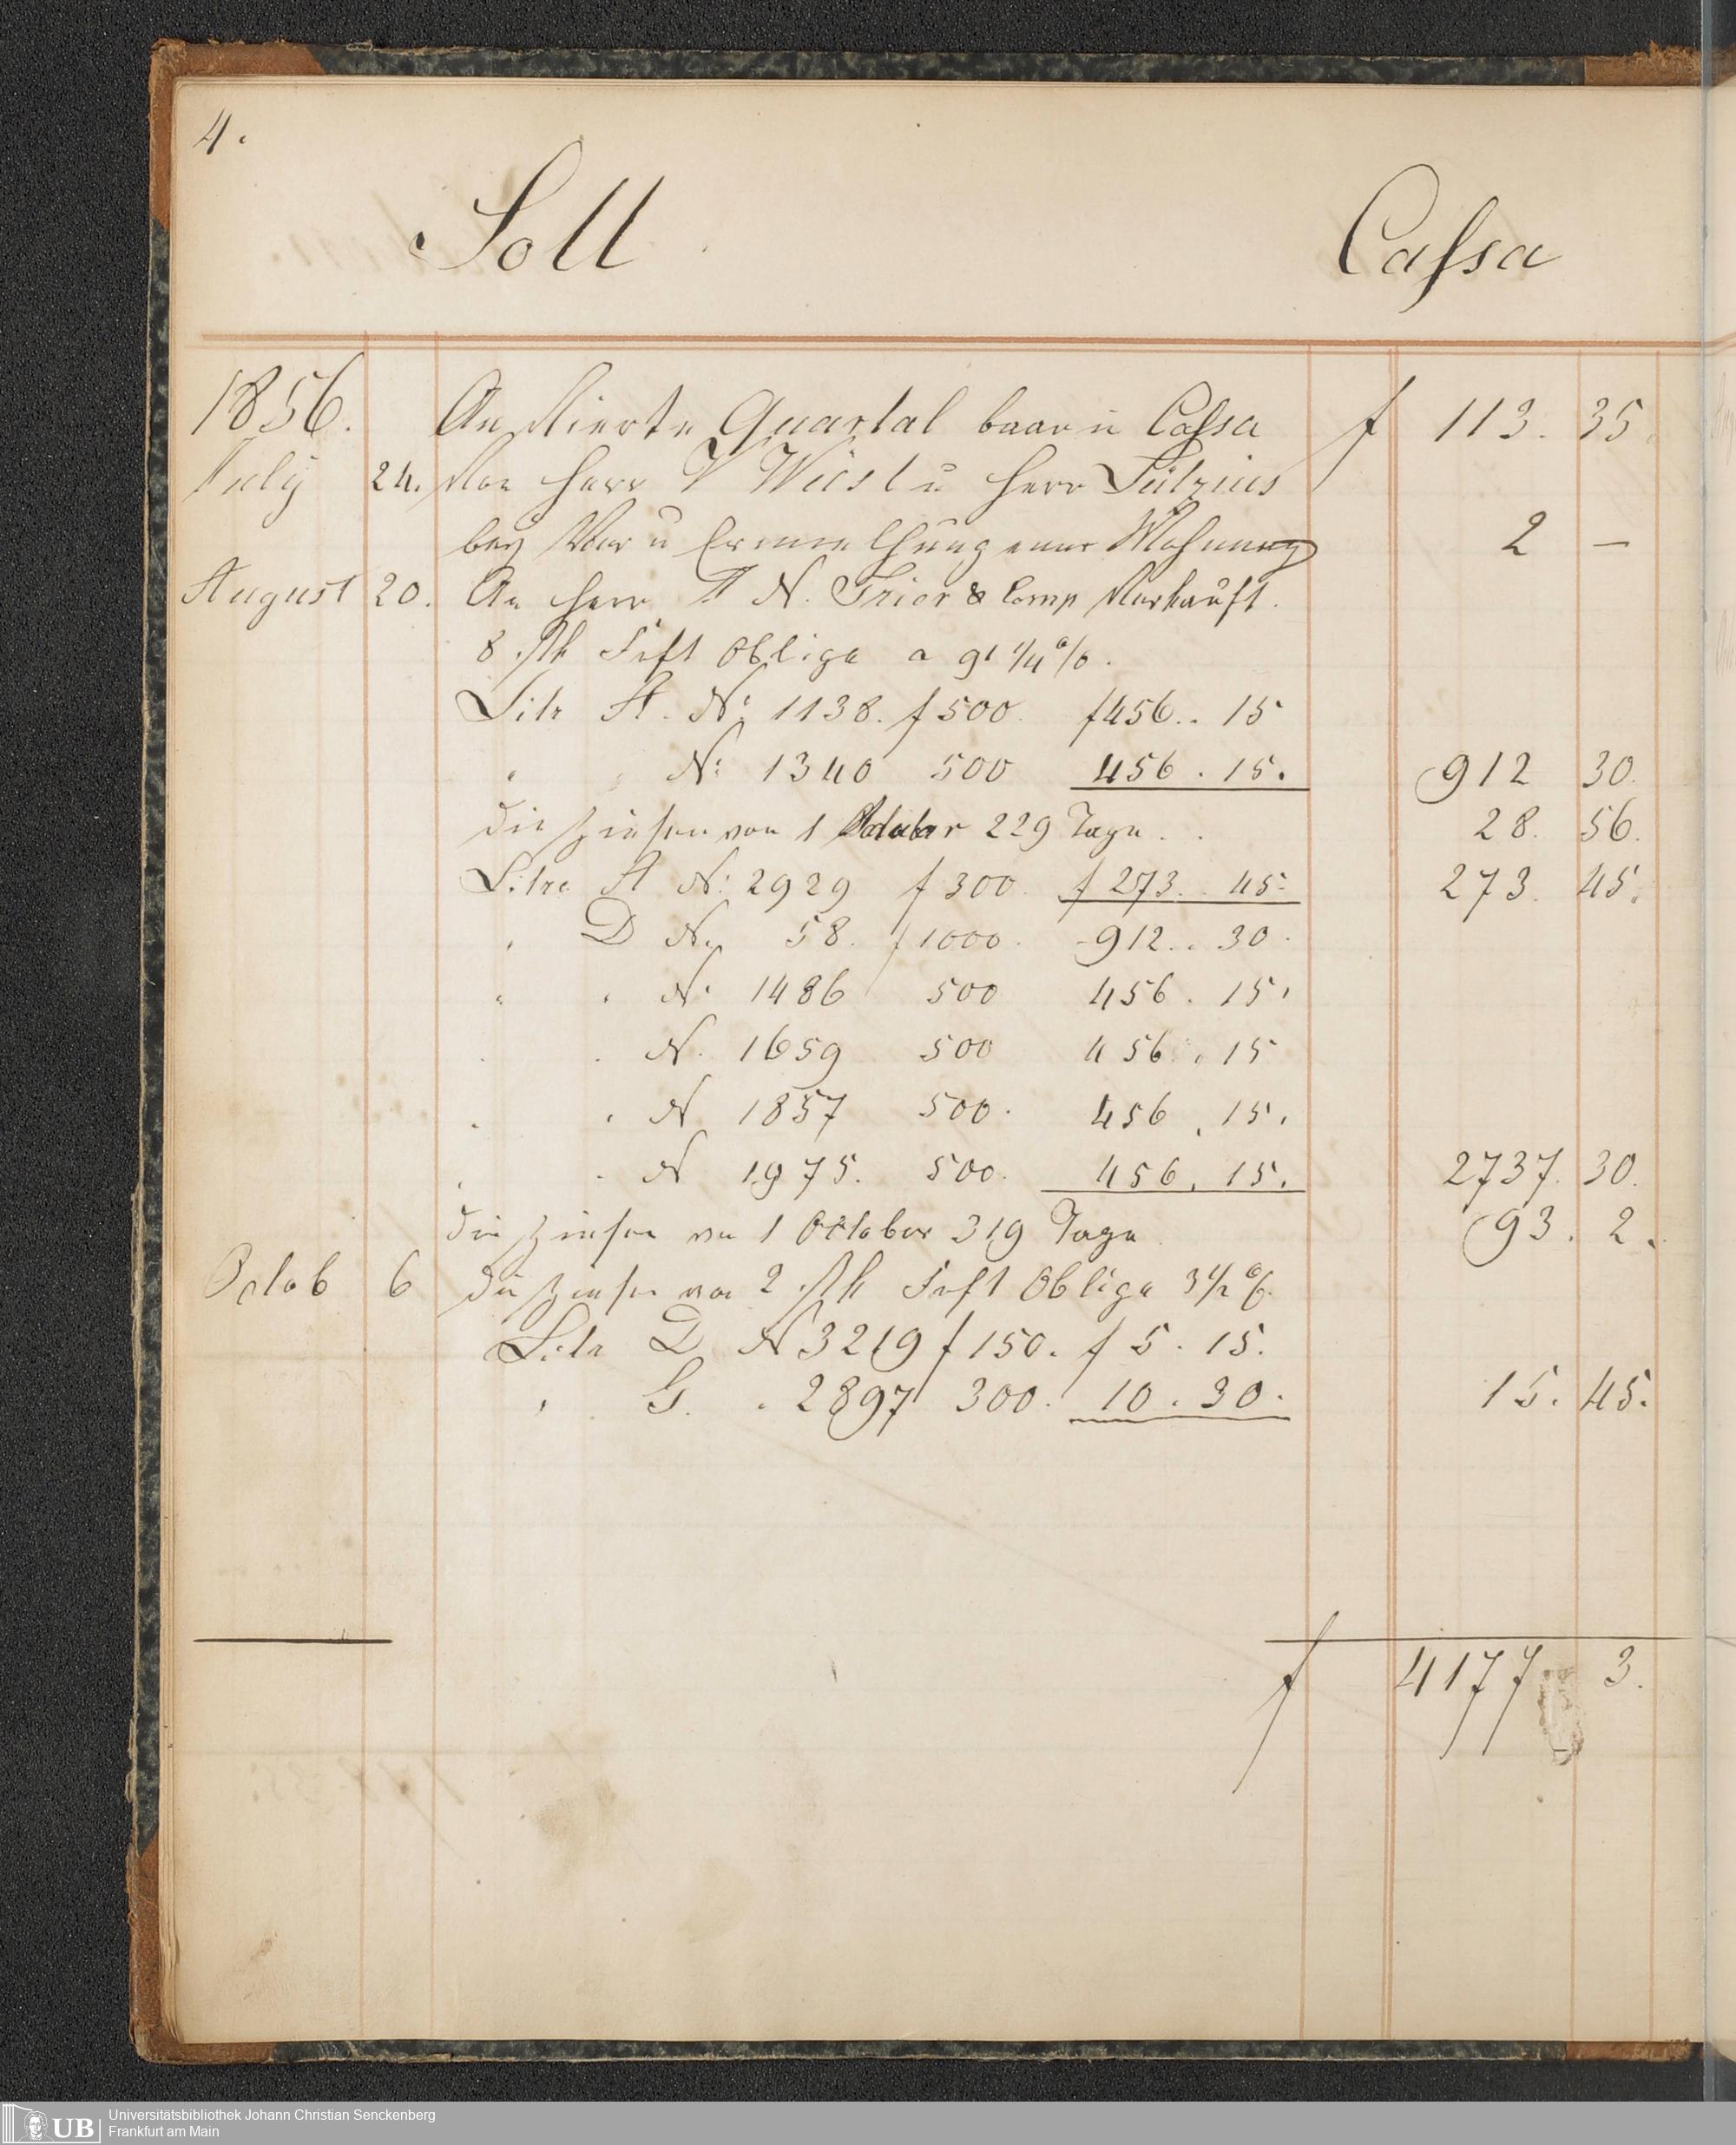 4.
Soll Cassa
1856. An Vierte Quartal baar in Cassa f 113. 35.
July 24. Von Herr Wüst u Herr Sulzius
bey Ver u Ermiethung einer Wohnung 2 —
August 20. An Herr A N. Trier & Comp Verkauft.
8 Stk Frft Obliga a 91 1/4 %.
Litr A. N: 1138. f 500. f 456.. 15
" " N: 1340 500 456. 15. 912 30.
Die Zinsen von 1 229 Tage.. 28. 56.
Litra A N: 2929 f 300. f 273.. 45. 273. 45.
" D N: 58. f 1000. 912.. 30.
" " N. 1486 500 456. 15.
" " N. 1659 500 456. 15
" " N 1857 500. 456. 15.
" " N 1975. 500. 456. 15. 2737. 30.
Die Zinsen von 1 October 319 Tage 93. 2.
Octob 6 Die Zinsen von 2 Stk Frft Obliga 3 1/2 %.
Litr D N 3219 f 150. f 5. 15.
" G. " 2897 300. 10. 30. 15. 45.
f 4177 3.
UB Universitätsbibliothek Johann Christian Senckenberg
Frankfurt am Main